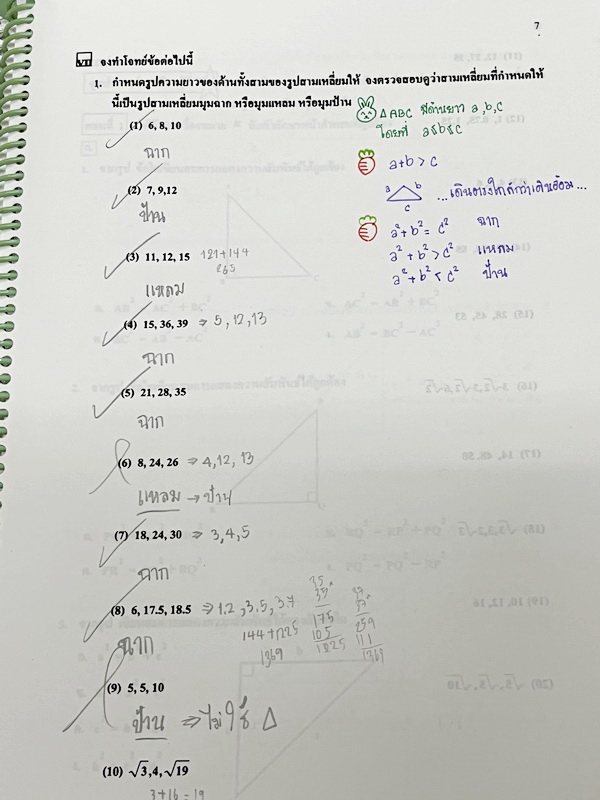 7
VII จงทำโจทย์ข้อต่อไปนี้
1. กำหนดรูปความยาวของด้านทั้งสามของรูปสามเหลี่ยมให้ จงตรวจสอบดูว่าสามเหลี่ยมที่กำหนดให้
นี้เป็นรูปสามเหลี่ยมมุมฉาก หรือมุมแหลม หรือมุมป้าน
△ABC มีด้านยาว a,b,c
โดยที่ a≤b≤c
a+b > c
a b
c
...เดินตรงใกล้กว่าเดินอ้อม...
a²+b² = c² ฉาก
a²+b² > c² แหลม
a²+b² < c² ป้าน
(1) 6, 8, 10
ฉาก
(2) 7, 9,12
ป้าน
(3) 11, 12, 15 121+144
265
แหลม
(4) 15, 36, 39 ⇒ 5, 12, 13
ฉาก
(5) 21, 28, 35
ฉาก
(6) 8, 24, 26 ⇒ 4, 12, 13
แหลม → ป้าน
(7) 18, 24, 30 ⇒ 3, 4, 5
ฉาก
(8) 6, 17.5, 18.5 ⇒ 1.2, 3.5, 3.7
144+1225
1369
35
35 ×
175
105
1225
37
37 ×
259
111
1369
ฉาก
(9) 5, 5, 10
ป้าน ⇒ ไม่ใช่ △
(10) √3,4,√19
3+16 = 19